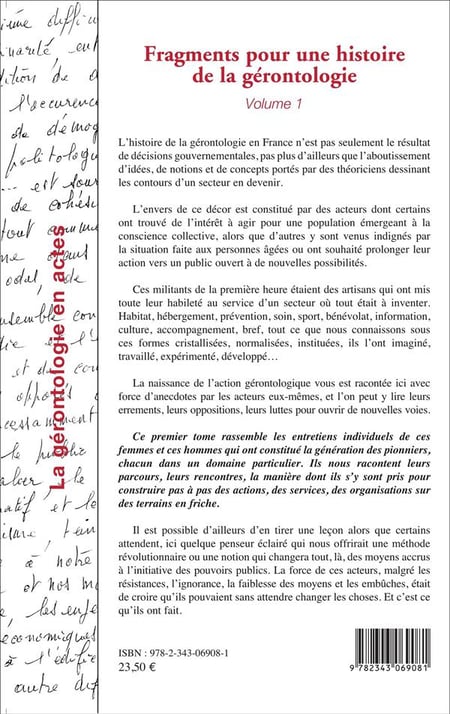 Fragments pour une histoire
de la gérontologie
Volume 1
L'histoire de la gérontologie en France n'est pas seulement le résultat
de décisions gouvernementales, pas plus d'ailleurs que l'aboutissement
d'idées, de notions et de concepts portés par des théoriciens dessinant
les contours d'un secteur en devenir.
L'envers de ce décor est constitué par des acteurs dont certains
ont trouvé de l'intérêt à agir pour une population émergeant à la
conscience collective, alors que d'autres y sont venus indignés par
la situation faite aux personnes âgées ou ont souhaité prolonger leur
action vers un public ouvert à de nouvelles possibilités.
Ces militants de la première heure étaient des artisans qui ont mis
toute leur habileté au service d'un secteur où tout était à inventer.
Habitat, hébergement, prévention, soin, sport, bénévolat, information,
culture, accompagnement, bref, tout ce que nous connaissons sous
ces formes cristallisées, normalisées, instituées, ils l'ont imaginé,
travaillé, expérimenté, développé…
La naissance de l'action gérontologique vous est racontée ici avec
force d'anecdotes par les acteurs eux-mêmes, et l'on peut y lire leurs
errements, leurs oppositions, leurs luttes pour ouvrir de nouvelles voies.
Ce premier tome rassemble les entretiens individuels de ces
femmes et ces hommes qui ont constitué la génération des pionniers,
chacun dans un domaine particulier. Ils nous racontent leurs
parcours, leurs rencontres, la manière dont ils s'y sont pris pour
construire pas à pas des actions, des services, des organisations sur
des terrains en friche.
Il est possible d'ailleurs d'en tirer une leçon alors que certains
attendent, ici quelque penseur éclairé qui nous offrirait une méthode
révolutionnaire ou une notion qui changera tout, là, des moyens accrus
à l'initiative des pouvoirs publics. La force de ces acteurs, malgré les
résistances, l'ignorance, la faiblesse des moyens et les embûches, était
de croire qu'ils pouvaient sans attendre changer les choses. Et c'est ce
qu'ils ont fait.
ISBN : 978-2-343-06908-1
23,50 €
9 782343 069081
La gérontologie en actes
difficu
de
l'occurence
de démog
politologu
est sour
de cohési
tout comme
ensemble con
et de cou
opposés
cessamment
le public
et le
à notre
et nos m
les enje
economiques
à l'édifi
autre dif